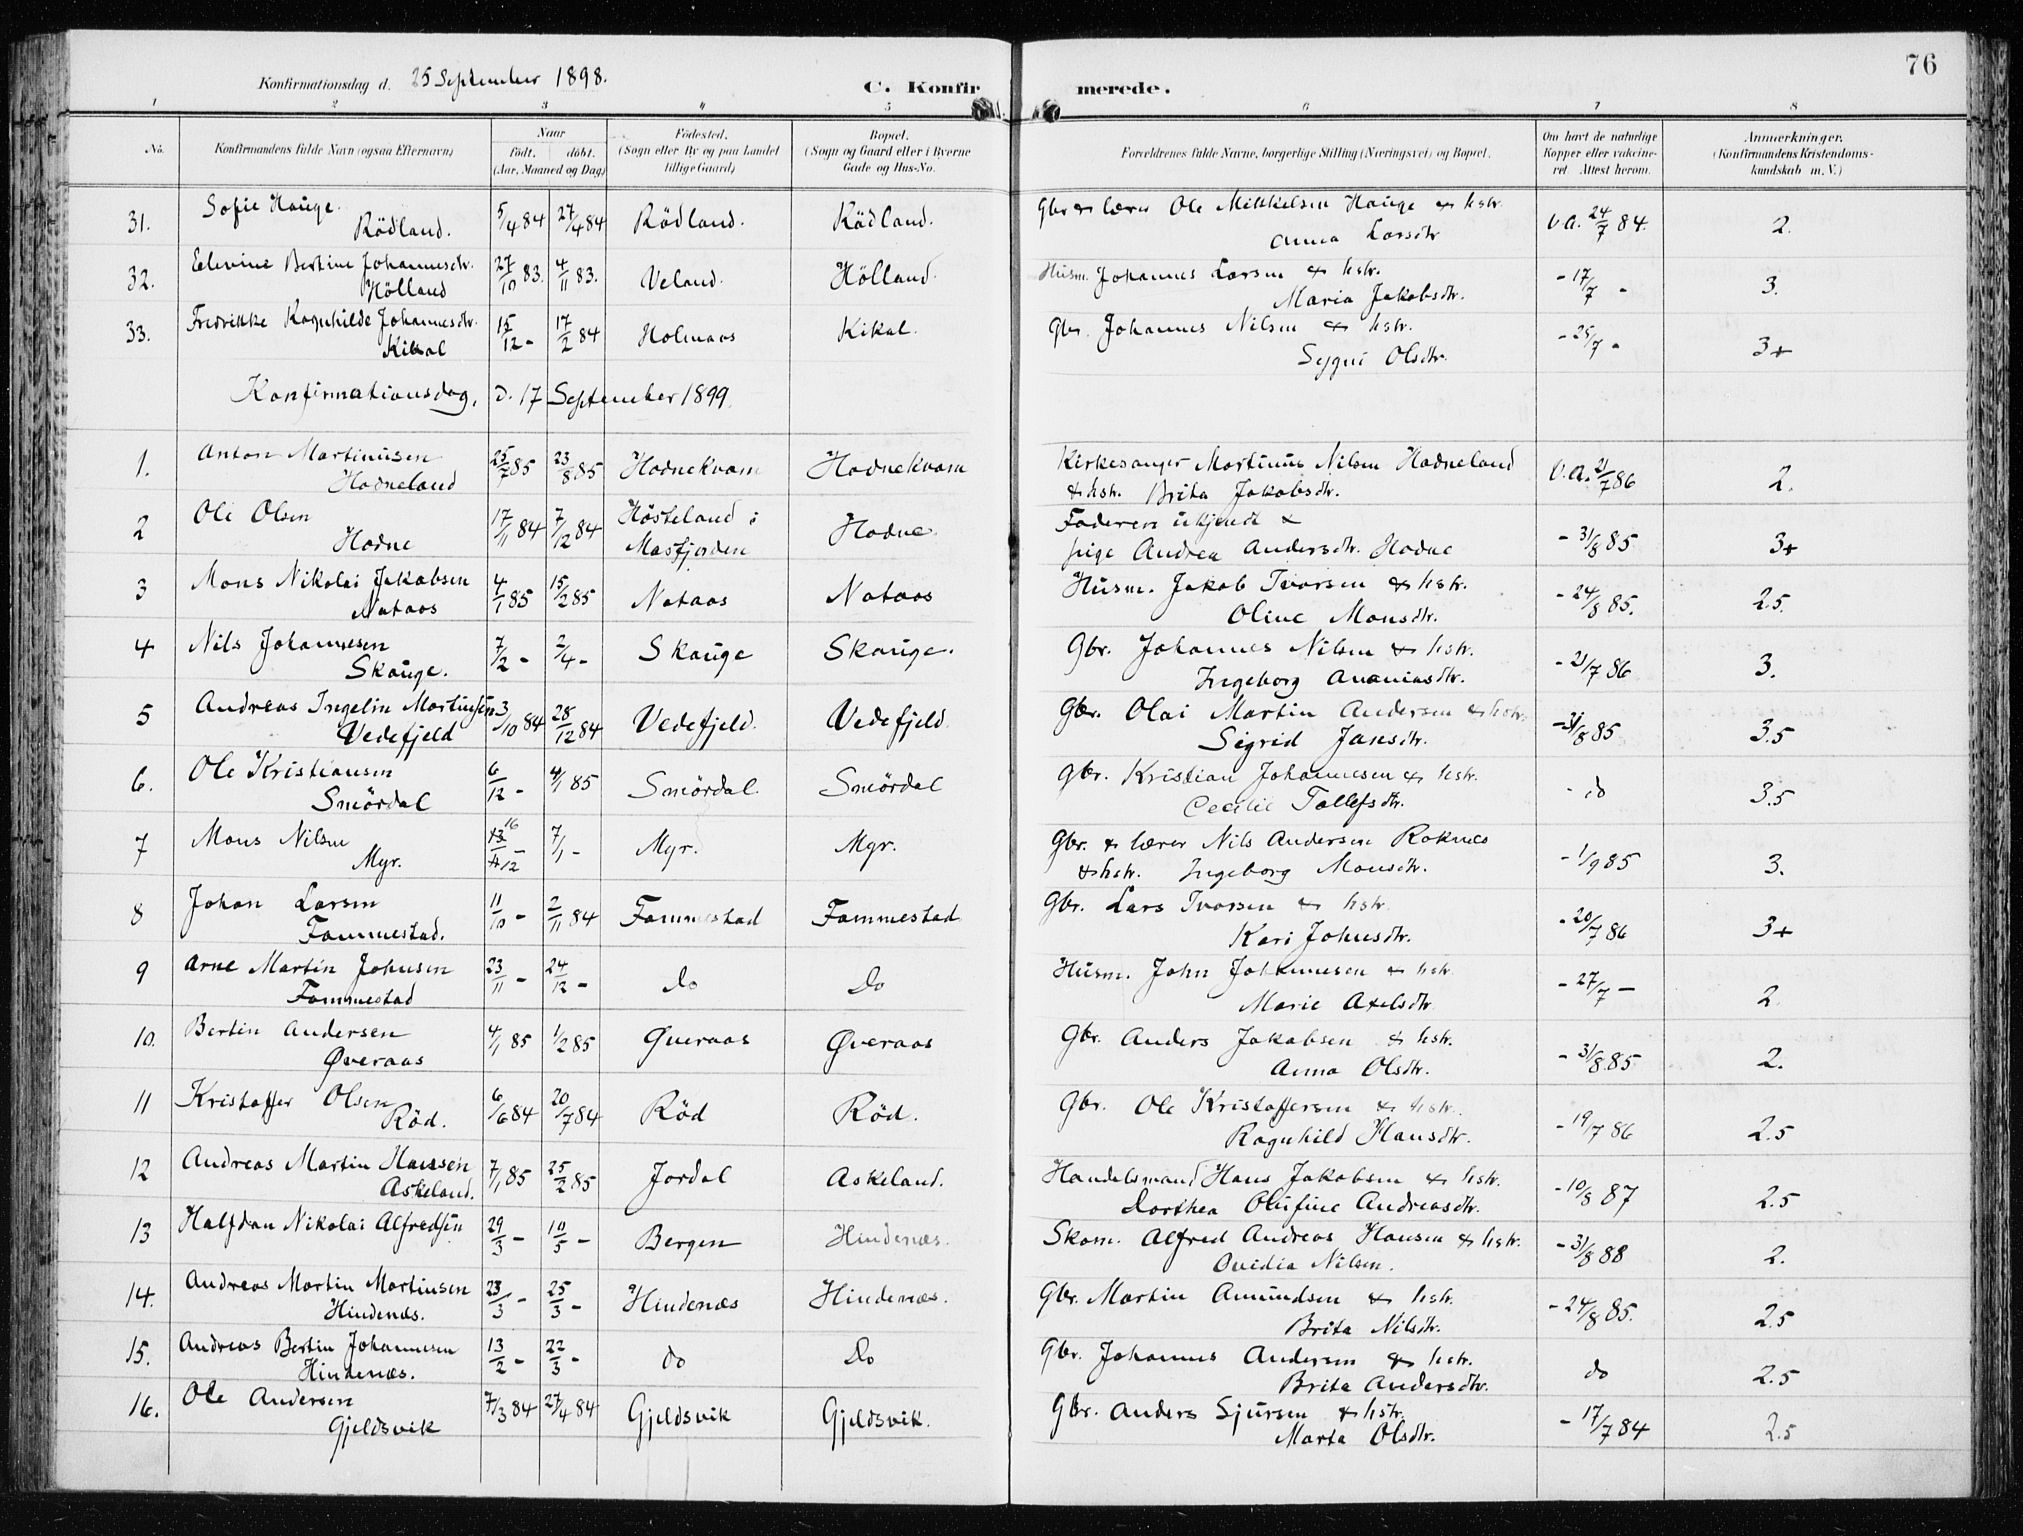 76
Konfirmationsdag d. 25 September 1898.
C. Konfirmerede.
1 2 3 4 5 6 7 8
No.
Konfirmandens fulde Navn (ogsaa Efternavn)
Naar
født. døbt.
(Aar, Maaned og Dag)
Fødested.
(Sogn eller By og paa Landet
tillige Gaard)
Bopæl.
(Sogn og Gaard eller i Byerne
Gade og Hus-No.
Forældrenes fulde Navne, borgerlige Stilling (Næringsvei) og Bopæl.
Om havt de naturlige
Kopper eller vakcine-
ret. Attest herom.
Anmærkninger.
(Konfirmandens Kristendoms-
kundskab m. V.)
31. Sofie Hauge. 5/4 84 27/4 84 Rödland. Rödland. Gbr & lærer Ole Mikkelsen Hauge & hstr. v.a. 24/7 84. 2.
Rödland. Anna Larsdtr
32. Elevine Bertine Johannesdtr. 27/10 83. 4/11 83. Veland. Hölland. Husm. Johannes Larsen & hstr. - 17/7 - 3.
Hölland Maria Jakobsdtr.
33. Fredrikke Ragnhilde Johannesdtr. 15/12 - 17/2 84 Holmaas Kikal. Gbr. Johannes Nilsen & hstr. - 25/7 - 3+
Kikal Sygni Olsdtr.
Konfirmationsdag, d. 17 September 1899.
1. Anton Martinusen 25/7 85 23/8 85 Hodnekvam Hodnekvam Kirkesanger Martinus Nilsen Hodneland v.a. 21/7 86 2.
Hodneland & hstr. Brita Jakobsdtr.
2 Ole Olsen 17/11 84 7/12 84 Høsteland i Hodne. Faderen ukjendt & - 31/8 85 3+
Hodne Masfjorden pige Andrea Andersdtr. Hodne
3 Mons Nikolai Jakobsen 4/1 85 15/2 85 Nataas Nataas Husm. Jakob Ivarsen & hstr. - 24/8 85. 2.5.
Nataas Oline Monsdtr.
4 Nils Johannesen 7/2 - 2/4 - Skauge Skauge. Gbr. Johannes Nilsen & hstr. - 21/7 86 3.
Skauge. Ingeborg Ananiasdtr.
5 Andreas Ingelin Martinsen 3/10 84 28/12 84 Vedefjeld. Vedefjeld Gbr. Olai Martin Andersen & hstr. - 31/8 85 3.5
Vedefjeld Sigrid Jansdtr.
6. Ole Kristiansen 6/12 - 4/1 85 Smördal. Smördal Gbr. Kristian Johannesen & hstr. - do 3.5
Smördal Cecilie Tollefsdtr.
7 Mons Nilsen 16/12 - 7/1 - Myr. Myr. Gbr. & lærer Nils Andersen Roknes - 1/9 85 3.
Myr. & hstr. Ingeborg Monsdtr.
8 Johan Larsen 11/10 - 2/11 84 Fammestad Fammestad Gbr. Lars Ivarsen & hstr. - 20/7 86 3+
Fammestad. Kari Johnsdtr.
9 Arne Martin Johnsen 23/11 - 24/12 - do Do Husm. John Johannesen & hstr. - 27/7 - 2.
Fammestad Marie Axelsdtr.
10. Bertin Andersen 4/1 85 1/2 85 Øveraas Øveraas Gbr. Anders Jakobsen & hstr. - 31/8 85 2.
Øveraas Anna Olsdtr.
11 Kristoffer Olsen 6/6 84 20/7 84 Röd Röd. Gbr. Ole Kristoffersen & hstr. - 19/7 86 2.5
Röd. Ragnhild Hansdtr.
12 Andreas Martin Hanssen 7/1 85 25/2 85 Jordal Askeland. Handelsmand Hans Jakobsen & hstr. - 10/8 87 2.5
Askeland. Dorthea Olufine Andreasdtr.
13 Halfdan Nikolai Alfredsen 29/3 - 10/5 - Bergen Hindenæs. Skom. Alfred Andreas Hansen & hstr. - 31/8 88 2.
Ovidia Nilsen.
14. Andreas Martin Martinsen 23/3 - 25/3 - Hindenæs Hindenæs. Gbr. Martin Amundsen & hstr. - 24/8 85. 2.5
Hindenæs. Brita Nilsdtr.
15. Andreas Bertin Johannesen 13/2 - 22/3 - do Do Gbr. Johannes Andersen & hstr. do 2.5
Hindenæs. Brita Andersdtr.
16. Ole Andersen 7/3 84 27/4 84 Gjeldsvik Gjeldsvik. Gbr. Anders Sjursen & hstr. - 17/7 84 2.5
Gjeldsvik Marta Olsdtr.